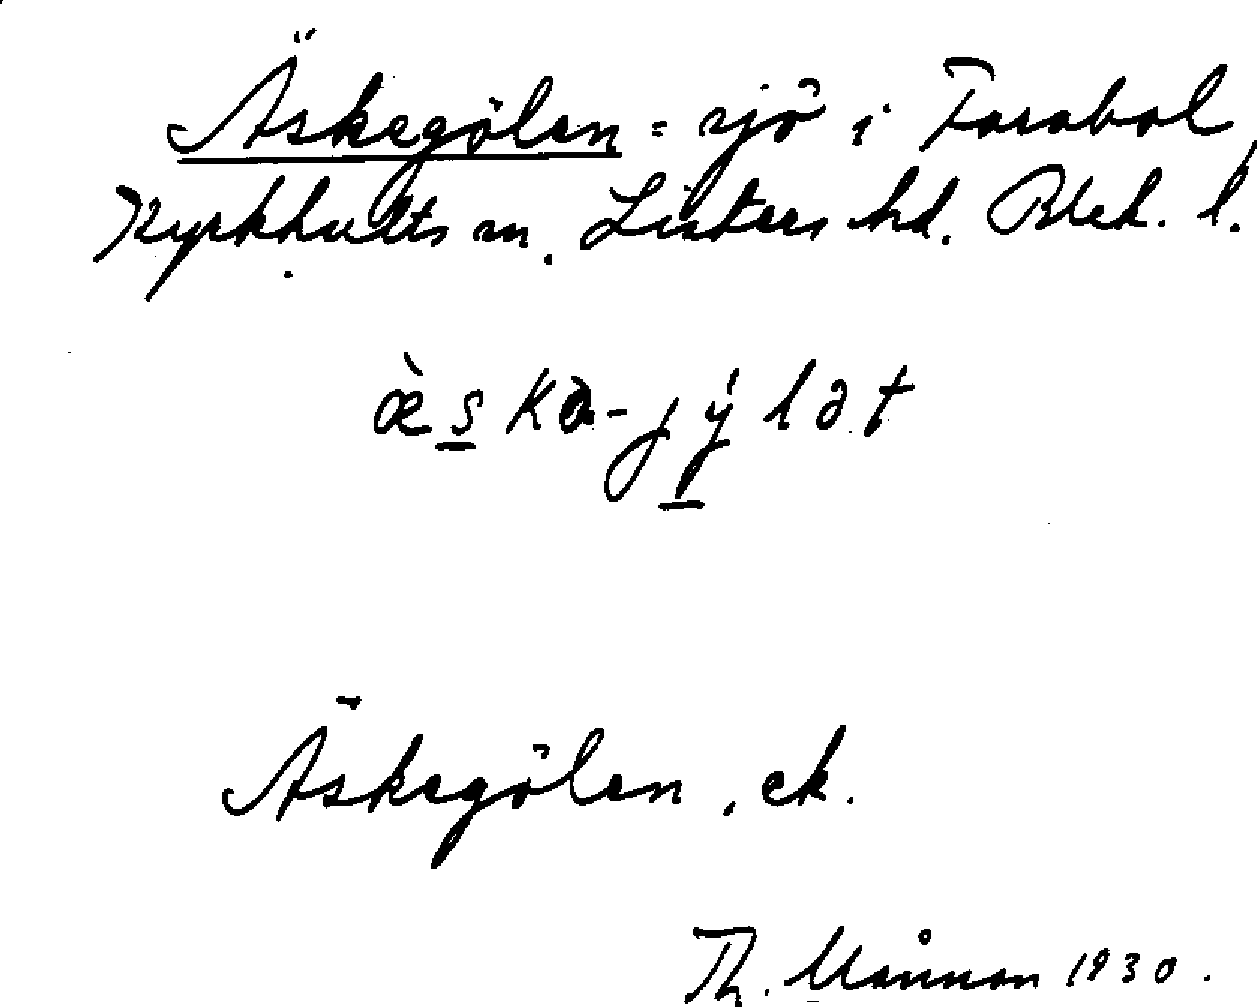 Äskegölen = sjö i Farabol,
Kyrkhults sn. Listers hd. Blek. l.
æ̀skə-jýlət
Äskegölen, ek.
Th. Månnson 1930.